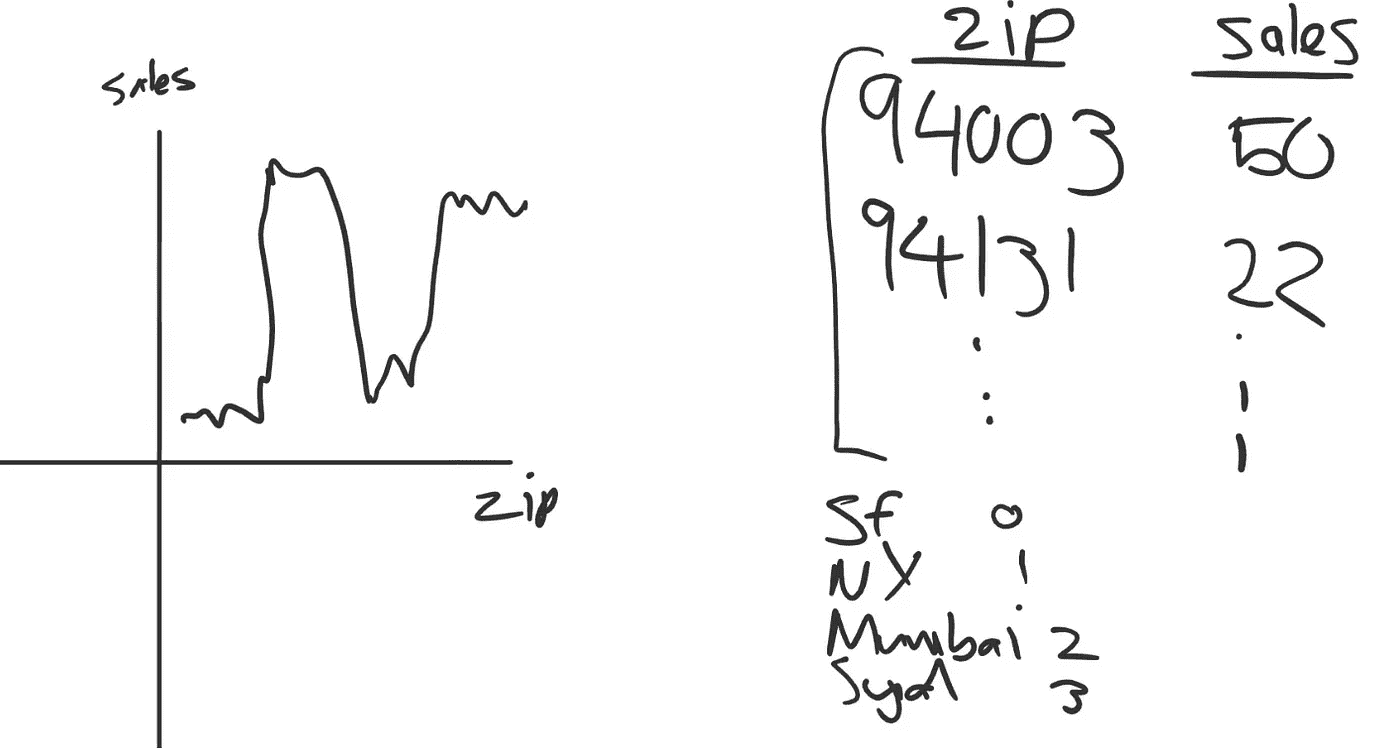 sales
zip
zip sales
94003 50
94131 22
Sf 0
NY 1
Mumbai 2
3